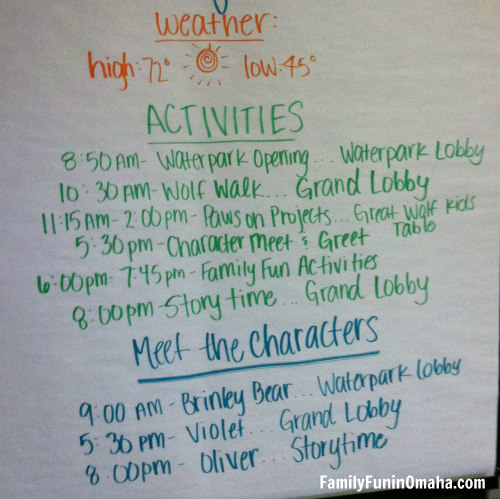 Weather:
high: 72° - low: 45°
ACTIVITIES
8:50 AM - Waterpark Opening... Waterpark Lobby
10:30 AM - Wolf Walk... Grand Lobby
11:15 AM - 2:00pm - Paws on Projects... Great Wolf Kids
Table
5:30pm - Character Meet & Greet
6:00pm - 7:45pm - Family Fun Activities
8:00pm - Story time... Grand Lobby
Meet the Characters
9:00 AM - Brinley Bear... Waterpark lobby
5:30 PM - Violet... Grand Lobby
8:00pm - Oliver... Storytime
FamilyFuninOmaha.com